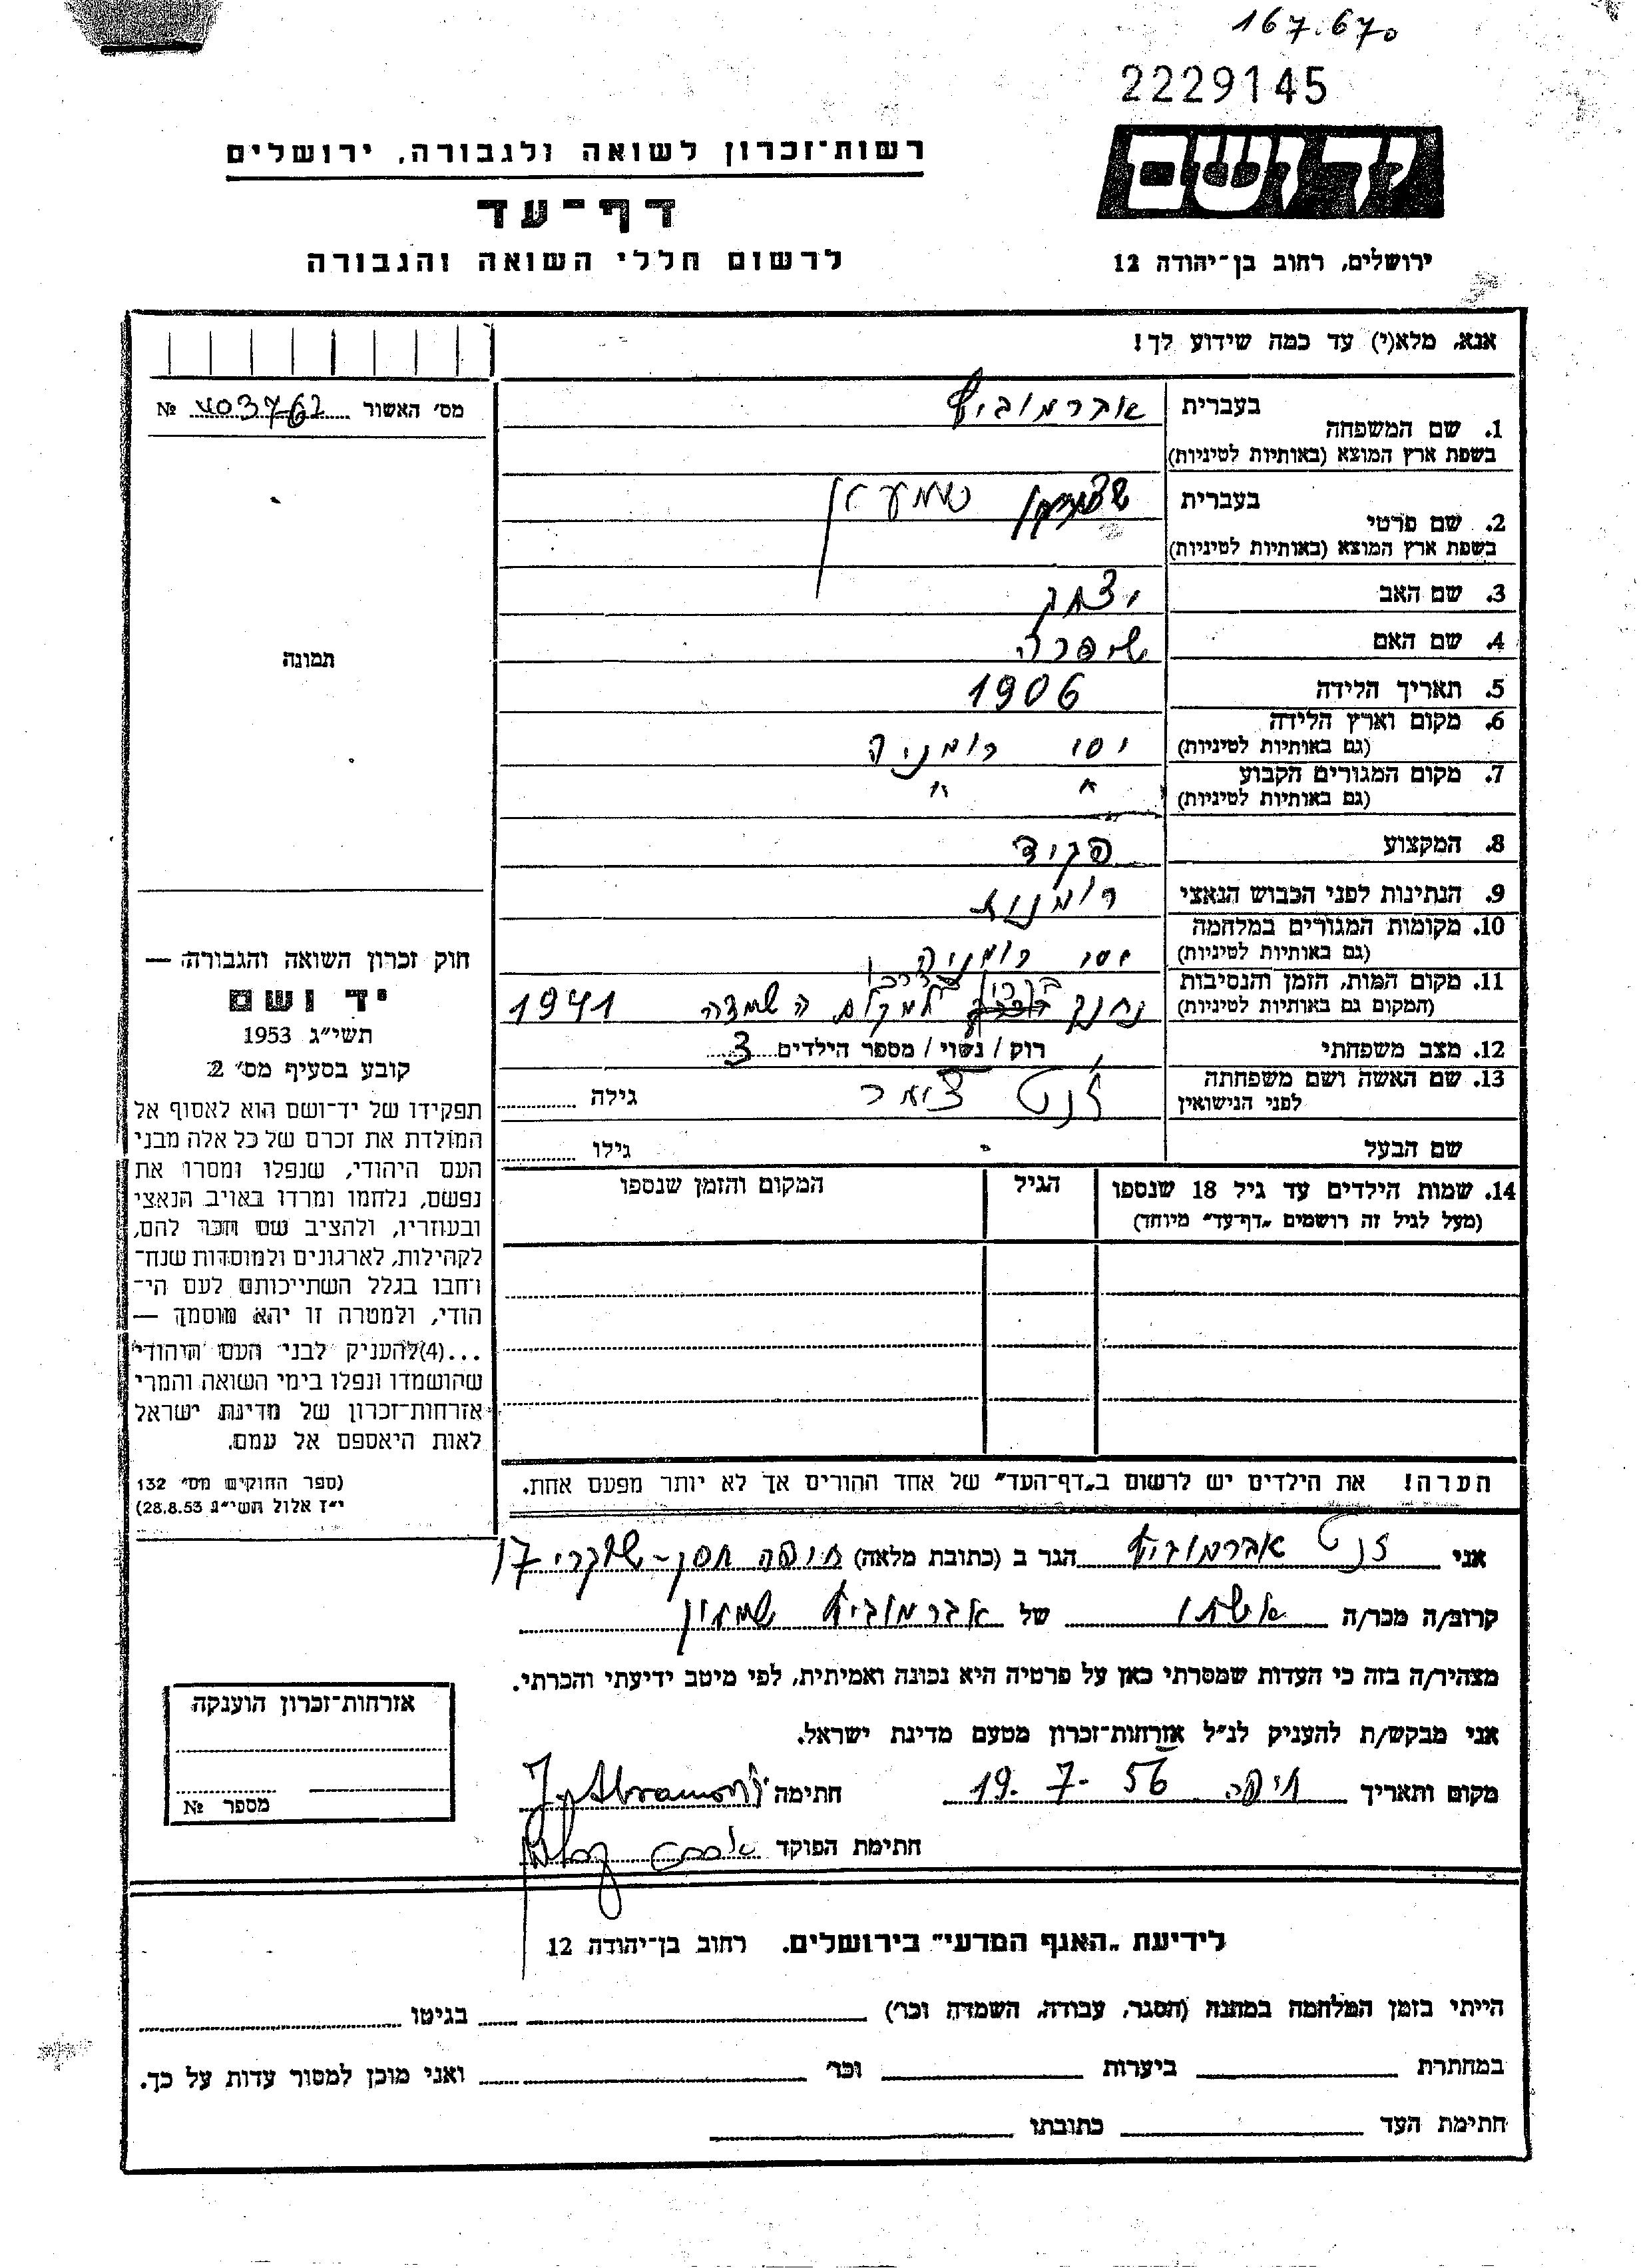 167.670
2229145
יד ושם
רשות־זכרון לשואה ולגבורה, ירושלים
דף־עד
לרשום חללי השואה והגבורה
ירושלים, רחוב בן־יהודה 12
אנא, מלא(י) עד כמה שידוע לך!
מס׳ האשור № 403762
1. שם המשפחה בעברית אברמוביץ
בשפת ארץ המוצא (באותיות לטיניות)
2. שם פרטי בעברית שמעון
בשפת ארץ המוצא (באותיות לטיניות)
3. שם האב יצחק
4. שם האם שיפרה
5. תאריך הלידה 1906
6. מקום וארץ הלידה יסי רומניה
(גם באותיות לטיניות)
7. מקום המגורים הקבוע " "
(גם באותיות לטיניות)
8. המקצוע פקיד
9. הנתינות לפני הכבוש הנאצי רומנית
10. מקומות המגורים במלחמה יסי רומניה
(גם באותיות לטיניות)
11. מקום המות, הזמן והנסיבות נחנק בדרכו למקום השמדה 1941
(המקום גם באותיות לטיניות)
12. מצב משפחתי רוק / נשוי / מספר הילדים 3
13. שם האשה ושם משפחתה ז׳נט גילה
לפני הנישואין
שם הבעל - גילו
14. שמות הילדים עד גיל 18 שנספו הגיל המקום והזמן שנספו
(מעל לגיל זה רושמים „דף־עד״ מיוחד)
הערה! את הילדים יש לרשום ב„דף־העד״ של אחד ההורים אך לא יותר מפעם אחת.
תמונה
חוק זכרון השואה והגבורה —
יד ושם
תשי״ג 1953
קובע בסעיף מס׳ 2
תפקידו של יד־ושם הוא לאסוף אל
המולדת את זכרם של כל אלה מבני
העם היהודי, שנפלו ומסרו את
נפשם, נלחמו ומרדו באויב הנאצי
ובעוזריו, ולהציב שם וזכר להם,
לקהילות, לארגונים ולמוסדות שנח־
רבו בגלל השתייכותם לעם הי־
הודי, ולמטרה זו יהא מוסמך —
...(4)להעניק לבני העם היהודי
שהושמדו ונפלו בימי השואה והמרי
אזרחות־זכרון של מדינת ישראל
לאות היאספם אל עמם.
(ספר החוקים מס׳ 132
י״ז אלול תשי״ג 28.8.53)
אני ז׳נט אברמוביץ הגר ב (כתובת מלאה) חיפה חסן-שוקרי 17
קרוב/ה מכר/ה אשתו של אברמוביץ שמעון
מצהיר/ה בזה כי העדות שמסרתי כאן על פרטיה היא נכונה ואמיתית, לפי מיטב ידיעתי והכרתי.
אני מבקש/ת להעניק לנ״ל אזרחות־זכרון מטעם מדינת ישראל.
מקום ותאריך חיפה 19.7.56 חתימה J. Abramovici
חתימת הפוקד
אזרחות־זכרון הוענקה
מספר №
לידיעת „האגף המדעי״ בירושלים, רחוב בן־יהודה 12
הייתי בזמן המלחמה במחנה (הסגר, עבודה, השמדה וכו׳) בגיטו
במחתרת ביערות וכו׳ ואני מוכן למסור עדות על כך.
חתימת העד כתובתו